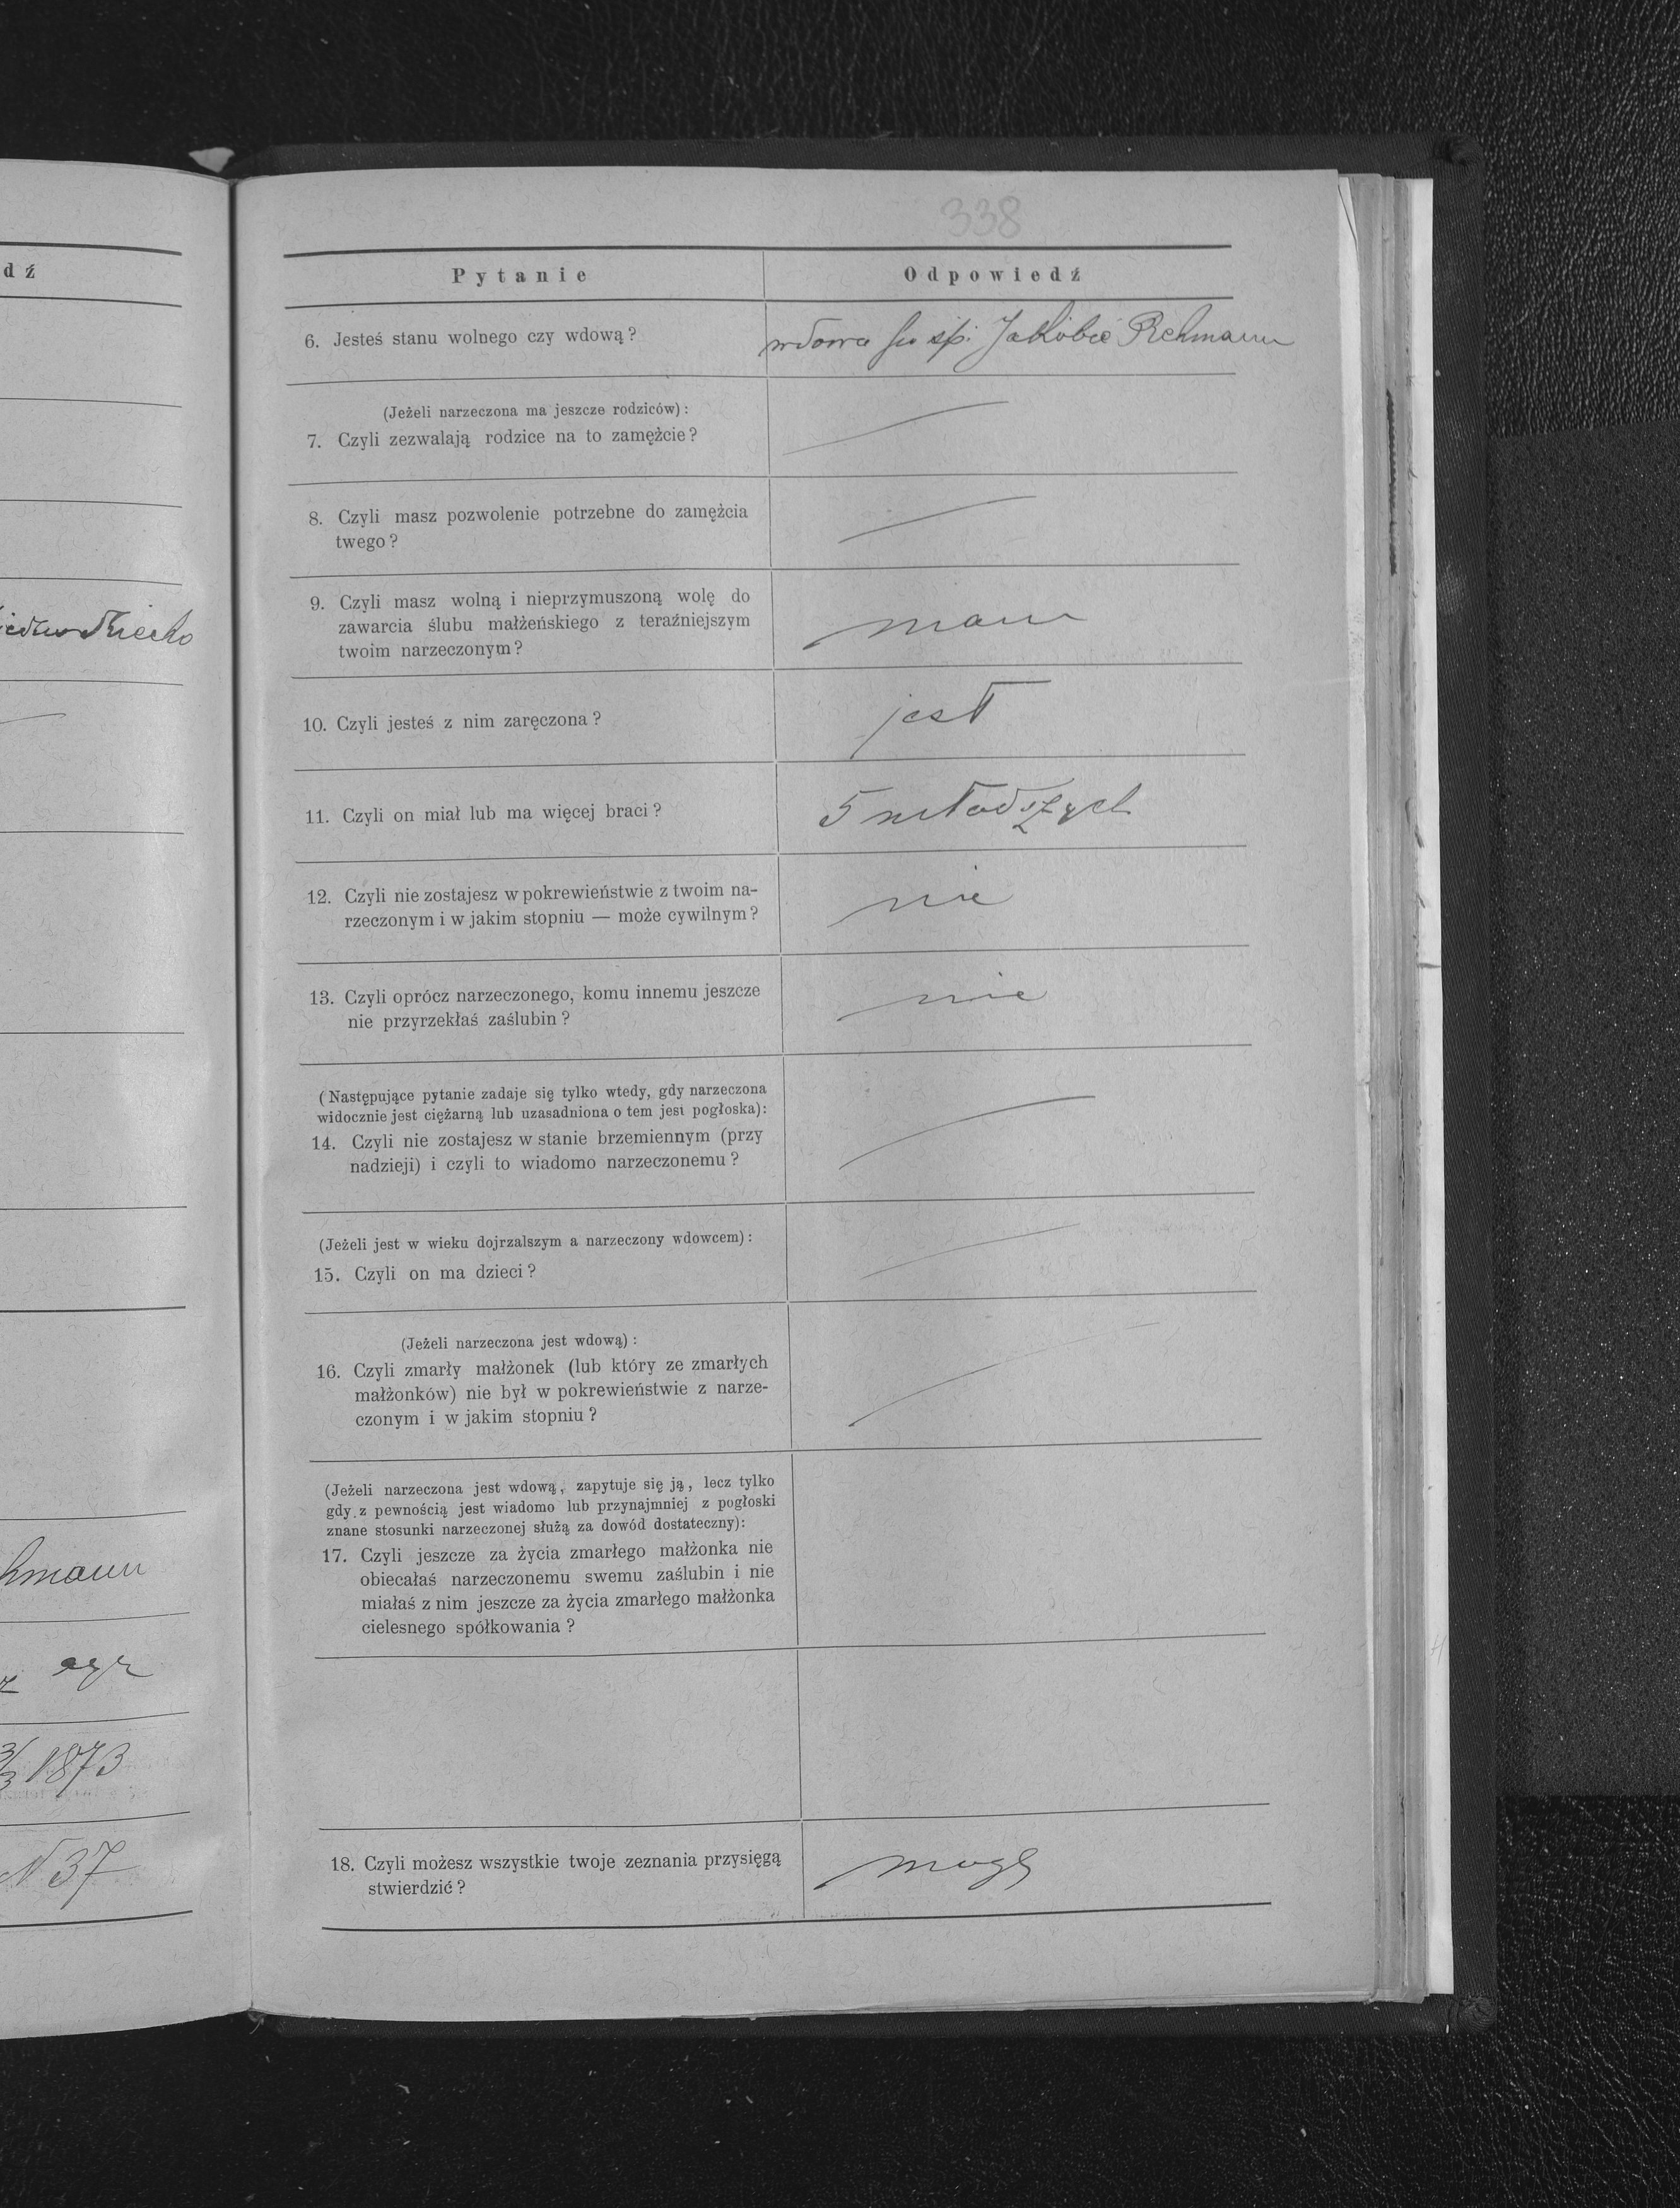 dź
iedrowskiecho
hmann
z agr
3/3 1873
N 37
338
Pytanie Odpowiedź
6. Jesteś stanu wolnego czy wdową? wdowa po śp. Jakóbie Rehmann
(Jeżeli narzeczona ma jeszcze rodziców):
7. Czyli zezwalają rodzice na to zamężcie?
8. Czyli masz pozwolenie potrzebne do zamężcia
twego?
9. Czyli masz wolną i nieprzymuszoną wolę do
zawarcia ślubu małżeńskiego z teraźniejszym
twoim narzeczonym? mam
10. Czyli jesteś z nim zaręczona? jest
11. Czyli on miał lub ma więcej braci? 5 młodszych
12. Czyli nie zostajesz w pokrewieństwie z twoim na-
rzeczonym i w jakim stopniu — może cywilnym? nie
13. Czyli oprócz narzeczonego, komu innemu jeszcze
nie przyrzekłaś zaślubin? nie
(Następujące pytanie zadaje się tylko wtedy, gdy narzeczona
widocznie jest ciężarną lub uzasadniona o tem jest pogłoska):
14. Czyli nie zostajesz w stanie brzemiennym (przy
nadzieji) i czyli to wiadomo narzeczonemu?
(Jeżeli jest w wieku dojrzalszym a narzeczony wdowcem):
15. Czyli on ma dzieci?
(Jeżeli narzeczona jest wdową):
16. Czyli zmarły małżonek (lub który ze zmarłych
małżonków) nie był w pokrewieństwie z narze-
czonym i w jakim stopniu?
(Jeżeli narzeczona jest wdową, zapytuje się ją, lecz tylko
gdy z pewnością jest wiadomo lub przynajmniej z pogłoski
znane stosunki narzeczonej służą za dowód dostateczny):
17. Czyli jeszcze za życia zmarłego małżonka nie
obiecałaś narzeczonemu swemu zaślubin i nie
miałaś z nim jeszcze za życia zmarłego małżonka
cielesnego spółkowania?
18. Czyli możesz wszystkie twoje zeznania przysięgą
stwierdzić? mogę